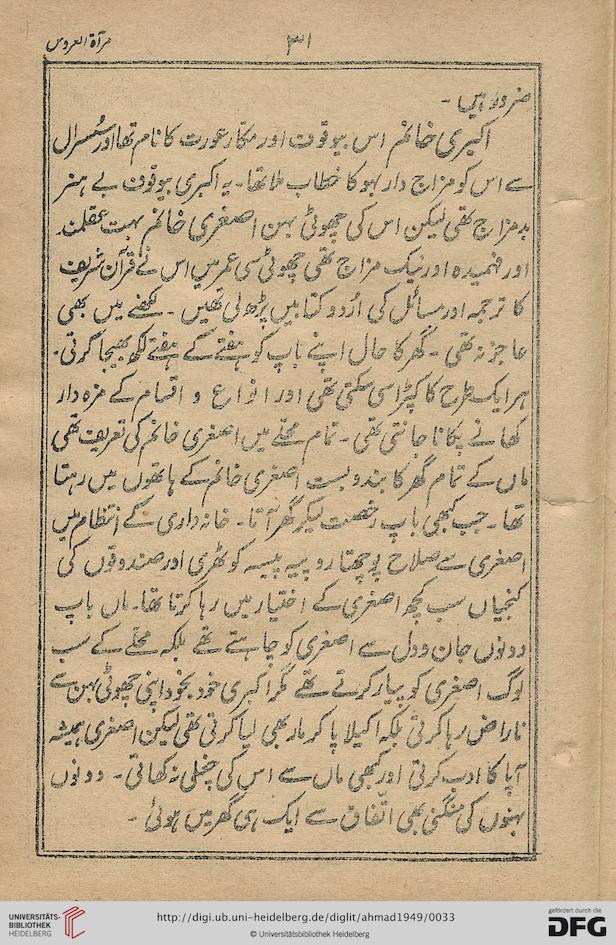 مرآۃ العروس
۳۱
ضرور ہیں۔
اکبری خانم اس بیوقوف اور مکار عورت کا نام تھا اور سُسرال
سے اس کو مزاج دار بہو کا خطاب ملا تھا۔ یہ اکبری بیوقوف بے ہنر
بدمزاج تھی لیکن اس کی چھوٹی بہن اصغری خانم بہت عقلمند
اور فہمیدہ اور نیک مزاج تھی چھوٹی سی عمر میں اس نے قرآن شریف
کا ترجمہ اور مسائل کی اُردو کتابیں پڑھ لی تھیں۔ لکھنے میں بھی
عاجز نہ تھی۔ گھر کا حال اپنے باپ کو ہفتے کے ہفتے لکھ بھیجا کرتی۔
ہر ایک طرح کا کپڑا سی سکتی تھی اور انواع و اقسام کے مزہ دار
کھانے پکانا جانتی تھی۔ تمام محلّے میں اصغری خانم کی تعریف تھی
ماں کے تمام گھر کا بندوبست اصغری خانم کے ہاتھوں میں رہتا
تھا۔ جب کبھی باپ رخصت لیکر گھر آتا۔ خانہ داری کے انتظام میں
اصغری سے صلاح پوچھتا روپیہ پیسہ کوٹھری اور صندوقوں کی
کنجیاں سب کچھ اصغری کے اختیار میں رہا کرتا تھا۔ ماں باپ
دونوں جان و دل سے اصغری کو چاہتے تھے بلکہ محلّے کے سب
لوگ اصغری کو پیار کرتے تھے مگر اکبری خود بخود اپنی چھوٹی بہن سے
ناراض رہا کرتی بلکہ اکیلا پا کر مار بھی لیا کرتی تھی لیکن اصغری ہمیشہ
آپا کا ادب کرتی اور کبھی ماں سے اس کی چغلی نہ کھاتی۔ دونوں
بہنوں کی منگنی بھی اتّفاق سے ایک ہی گھر میں ہوئی۔
UNIVERSITÄTS-
BIBLIOTHEK
HEIDELBERG
http://digi.ub.uni-heidelberg.de/diglit/ahmad1949/0033
© Universitätsbibliothek Heidelberg
gefördert durch die
DFG